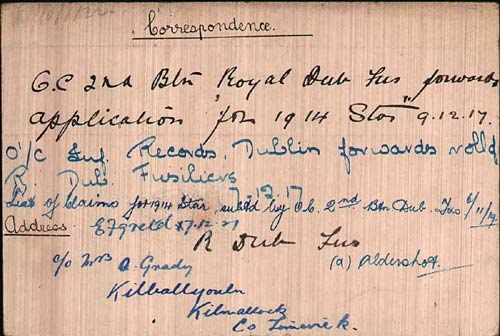 Correspondence.
O.C 2nd Btn "Royal Dub Fus" forwards
application for 1914 Star 9.12.17.
O/C Inf. Records, Dublin forwards
R. Dub. Fusiliers 7-12-17
List of Claims for 1914 Star, subtd by O.C. 2nd Btn Dub. Fus
Address.
R Dub Fus
c/o Mrs A. Grady (a) Aldershot
Kilballyowen
Kilmallock
Co Limerick.